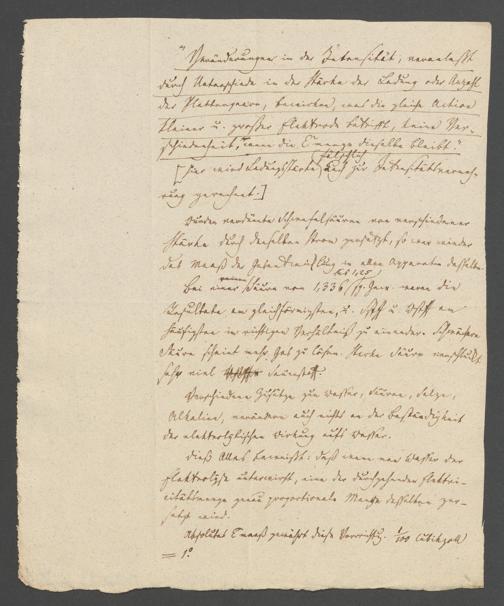 "Veränderungen in der Intensität, veranlaßt
durch Unterschiede in der Stärke der Ladung oder Anzahl
der Plattenpaare, bewirken, was die gleiche Action
kleiner u. großer Elektrode betrifft, keine Ver-
schiedenheit, wenn die E menge dieselbe bleibt."
fälschlich
[Hier wird Ladungsstärke auch zur Intensitätsvermeh-
rung gerechnet.]
Wurden verdünnte Schwefelsäuren von verschiedener
Stärke durch denselben Strom zersetzt, so war wieder
das Maaß der in allen Apparaten dasselbe.
Bei einer Säure von 1,336 sp. Gew. waren die
bis 1,25
Resultate am gleichförmigsten, u. Hstoff u. Ostoff am
häufigsten in richtigem Verhältniß zu einander. Schwächere
Säure scheint mehr Gas zu lösen. Starke Säure verschluckt
sehr viel Sauerstoff.
Verschiedene Zusätze zum Wasser, Säuren, Salze,
Alkalien, verändern auch nichts an der Beständigkeit
der elektrolytischen Wirkung aufs Wasser.
Dieß Alles beweißt: daß wenn man Wasser der
Elektrolyse unterwirft, eine der durchgehenden Elektri-
citätsmenge genau proportionale Menge desselben zer-
setzt wird.
Absolutes E maaß gewährt diese Vorrichtung. 1/100 Cubikzoll
= 1°